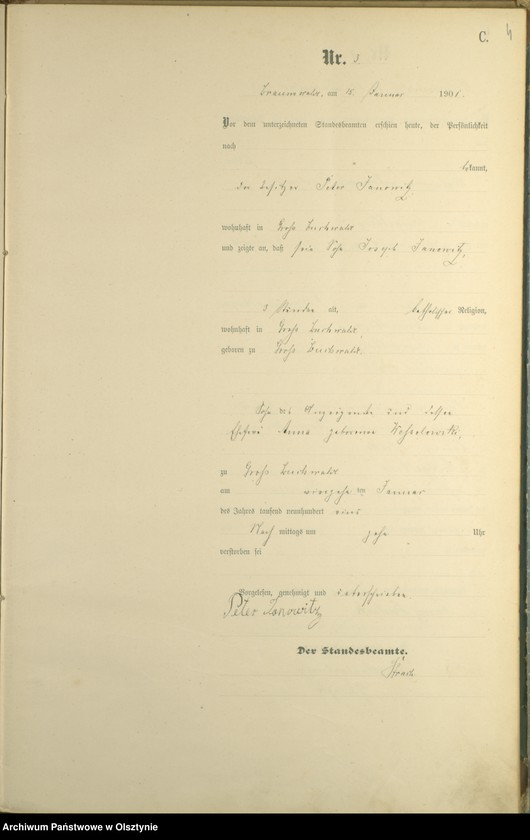 C. 4
Nr. 3
Braunswalde, am 15. Januar 1901.
Vor dem unterzeichneten Standesbeamten erschien heute, der Persönlichkeit
nach
bekannt,
der Besitzer Peter Janowitz
wohnhaft in Groß Buchwalde
und zeigte an, daß sein Sohn Joseph Janowitz,
3 Stunden alt, katholischer Religion,
wohnhaft in Groß Buchwalde
geboren zu Groß Buchwalde,
Sohn des Anzeigenden und dessen
Ehefrau Anna geborenen
zu Groß Buchwalde
am vierzehnten Januar
des Jahres tausend neunhundert eins
Nach mittags um zehn Uhr
verstorben sei
Vorgelesen, genehmigt und unterschrieben
Peter Janowitz
Der Standesbeamte.
Archiwum Państwowe w Olsztynie